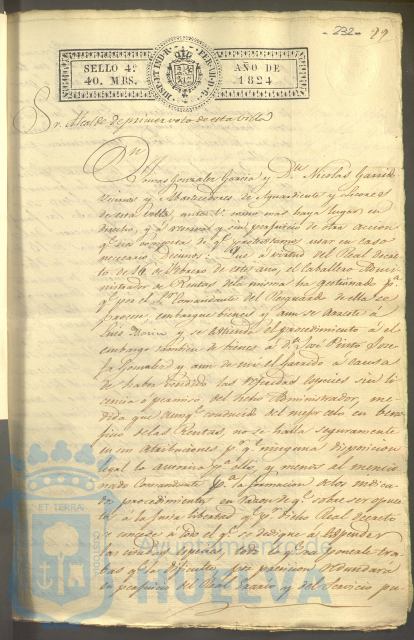 -232-
99
SELLO 4º
40. MRS.
AÑO DE
1824
HISP. ET IND. R.
FERD. VII. D. G.
Sr. Alcalde de primer voto de esta Villa
Dn
Tomas Gonzalez Garcia y Dn. Nicolas Garrido
Vecinos y Abastecedores de Aguardiente y Licores
de esta Villa, ante V. como mas haya lugar en
derecho, y a reserva y sin perjuicio de otra accion
qe. sea competa de qe. protestamos usar en caso
necesario Decimos: Que a virtud del Real Decre
to de 16 de Febrero de este año, el Caballero Admi
nistrador de Rentas de la misma ha gestionado pa.
qe. por el Sr. Comandante del Resguardo de ella se
procese, embargue bienes y aun se arreste a
Luis Moreno y se estienda el procedimiento a el
embargo tambien de bienes a Dn. José Pinto Jose
fa Gonzalez y aun de mi el Garrido a causa
de haber vendido las referidas especies sin li
cencia o permiso del dicho Administrador, me
dida que aunqe. conducido del mejor celo en bene
ficio de las Rentas, no se halla seguramente
en sus atribuciones pr. qe. ninguna disposicion
Real lo autoriza pa. ello, y menos al mencio
nado Comandante pa. la formacion de los indica
dos procedimientos en razon de qe. sobre ser opues
to á la justa libertad qe. pr. dicho Real Decreto
se concede a todo el qe. se dedique á espender
las
qe. lo dificulte, por precision redundara
en perjuicio del Real Erario y del Servicio pu
ET TERRA
Ayuntamiento de
HUELVA